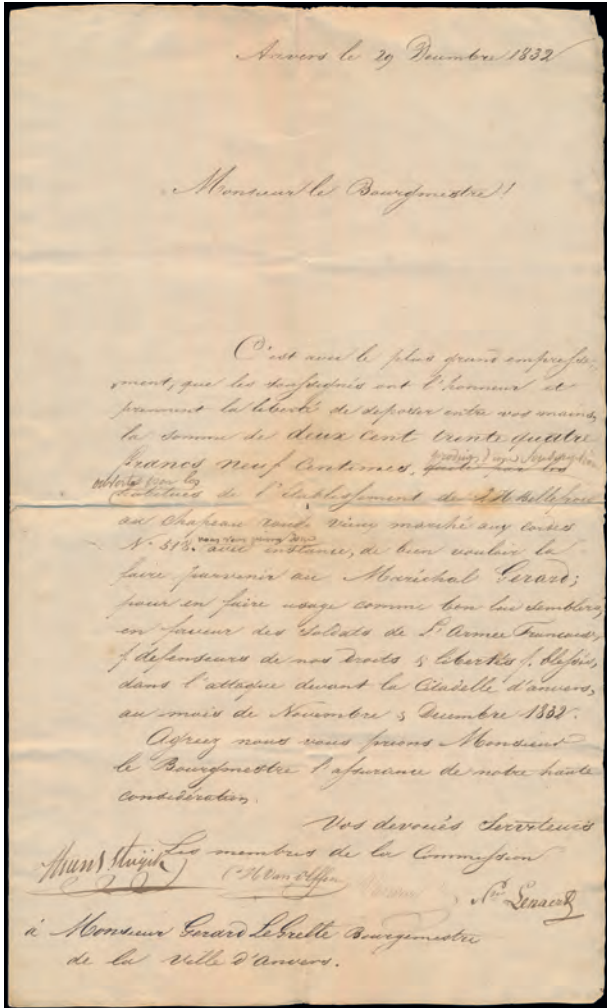 Anvers le 29 Decembre 1832
Monsieur le Bourgmestre!
C'est avec le plus grand empresse-
ment, que les soussignés ont l'honneur et
prennent la liberté de deposer entre vos mains,
la somme de deux cent trente quatre
francs neuf centimes, produit d'une Souscription
ouverte par les
habitués de l'Etablissement de
au chapeau rond vieux marché aux
N. 313. avec instance, de bien vouloir la
faire parvenir au Maréchal Gerard;
pour en faire usage comme bon lui semblera,
en faveur des Soldats de L'Armee Francoise,
f defenseurs de nos Droits & libertés f. blessés,
dans l'attaque devant la Citadelle d'anvers,
au mois de Novembre & Decembre 1832.
Agréez nous vous prions Monsieur
le Bourgmestre l'assurance de notre haute
considération.
Vos devoués Serviteurs
Les membres de la Commission
Lenaerts
à Monsieur Gerard LeGrelle Bourgemestre
de la Ville d'anvers.